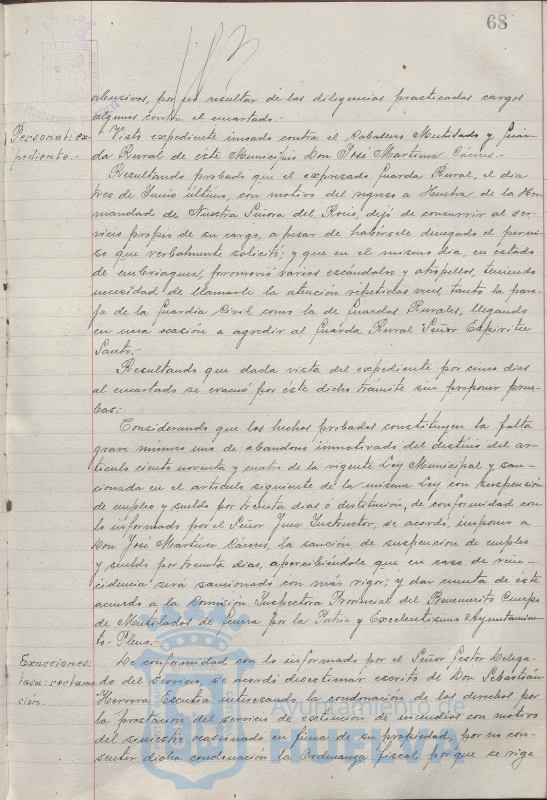 68
abusivos, por no resultar de las diligencias practicadas cargos
algunos contra el encartado.-
Personal: ex-
pediente.-
Visto expediente incoado contra el Caballero Mutilado y Guar-
da Rural de éste Municipio Don José Martínez Cáceres.-
Resultando probado que el expresado Guarda Rural, el dia
tres de Junio último, con motivo del regreso a Huelva de la Her-
mandad de Nuestra Señora del Rocio, dejó de concurrir al ser-
vicio propio de su cargo, a pesar de habérsele denegado el permi-
so que verbalmente solicitó; y que en el mismo dia, en estado
de embriaguez, promovió varios escándalos y atropellos, teniendo
necesidad de llamarle la atención repetidas veces, tanto la pare-
ja de la Guardia Civil como la de Guardas Rurales, llegando
en una ocasión a agredir al Guarda Rural Señor Espiritu
Santo.-
Resultando que dada vista del expediente por cinco dias
al encartado se evacuó por éste dicho trámite sin proponer prue-
bas;
Considerando que los hechos probados constituyen la falta
grave número uno de abandono inmotivado del destino del ar-
tículo ciento noventa y cuatro de la vigente Ley Municipal y san-
cionada en el artículo siguiente de la misma Ley con suspensión
de empleo y sueldo por treinta dias ó destitución, de conformidad con
lo informado por el Señor Juez Instructor, se acordó, imponer a
Don José Martínez Cáceres, la sanción de suspensión de empleo
y sueldo por treinta dias, apercibiéndole que en caso de rein-
cidencia será sancionado con más rigor; y dar cuenta de éste
acuerdo a la Comisión Inspectora Provincial del Benemérito Cuerpo
de Mutilados de Guerra por la Patria y Excelentísimo Ayuntamien-
to-Pleno.-
Exacciones:
tasa: reclama
ción.
De conformidad con lo informado por el Señor Gestor Delega-
do del servicio, se acordó desestimar escrito de Don Sebastián
Herrera Escutia interesando la condonación de los derechos por
la prestación del servicio de extinción de incendios con motivo
del siniestro ocasionado en finca de su propiedad, por no con-
sentir dicha condonación la Ordenanza fiscal porque se rige
Ayuntamiento de
HUELVA